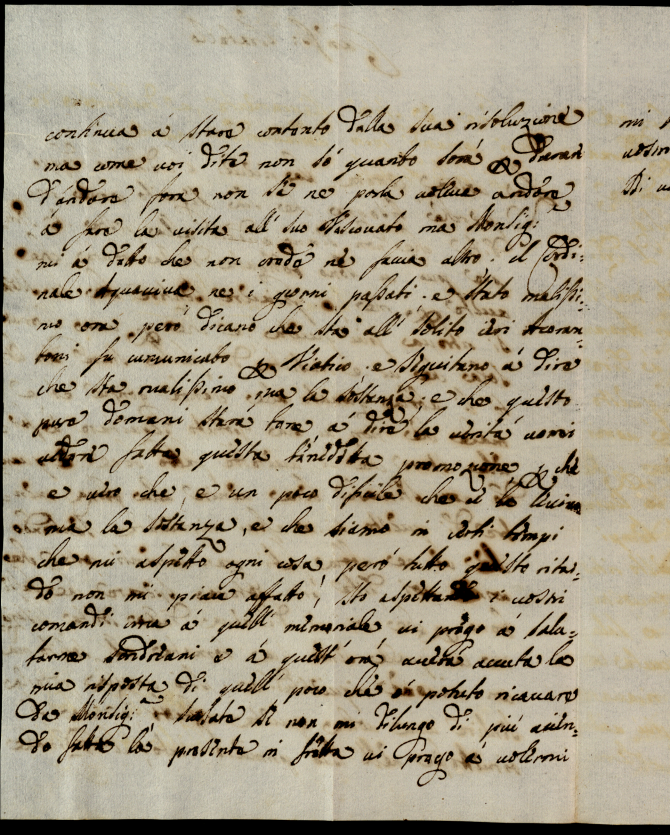 continua á stare contento della sua risoluzione
ma come voi dite non só quanto sarà durar
d'andare fora non se ne parla voleva andare
á fare la visita all suo Vescovato ma Monsig:r
mi á detto che non crede ne facia altro. il Cordi:
nale Aquaviva ne i giorni passati e stato malissi:
mo ora peró dicano che sta all' solito ieri Acoran:
boni fu comunicato Viatico e seguitano á dire
che sta malissimo ma la sostanza e che questo
pure domani stará bene á dire la veritá vorrei
vedere fatta questa benedetta promozione, che
e vero che, e un poco dificile che
ma la sostanza, e che siamo in certi tempi
che mi aspetto ogni cosa peró tutto questo ritar:
do non mi piace affatto, sto aspettando i vostri
comandi circa á quell memoriale vi prego á salu:
tarne Sondriani e á quest' ora avera avuta la
mia risposta di quell poco che ó potuto ricavare
da Monsig:r scusate se non mi dilungo di più aven:
do fatta la presente in fretta vi prego á volermi
mi
vostr
Di v